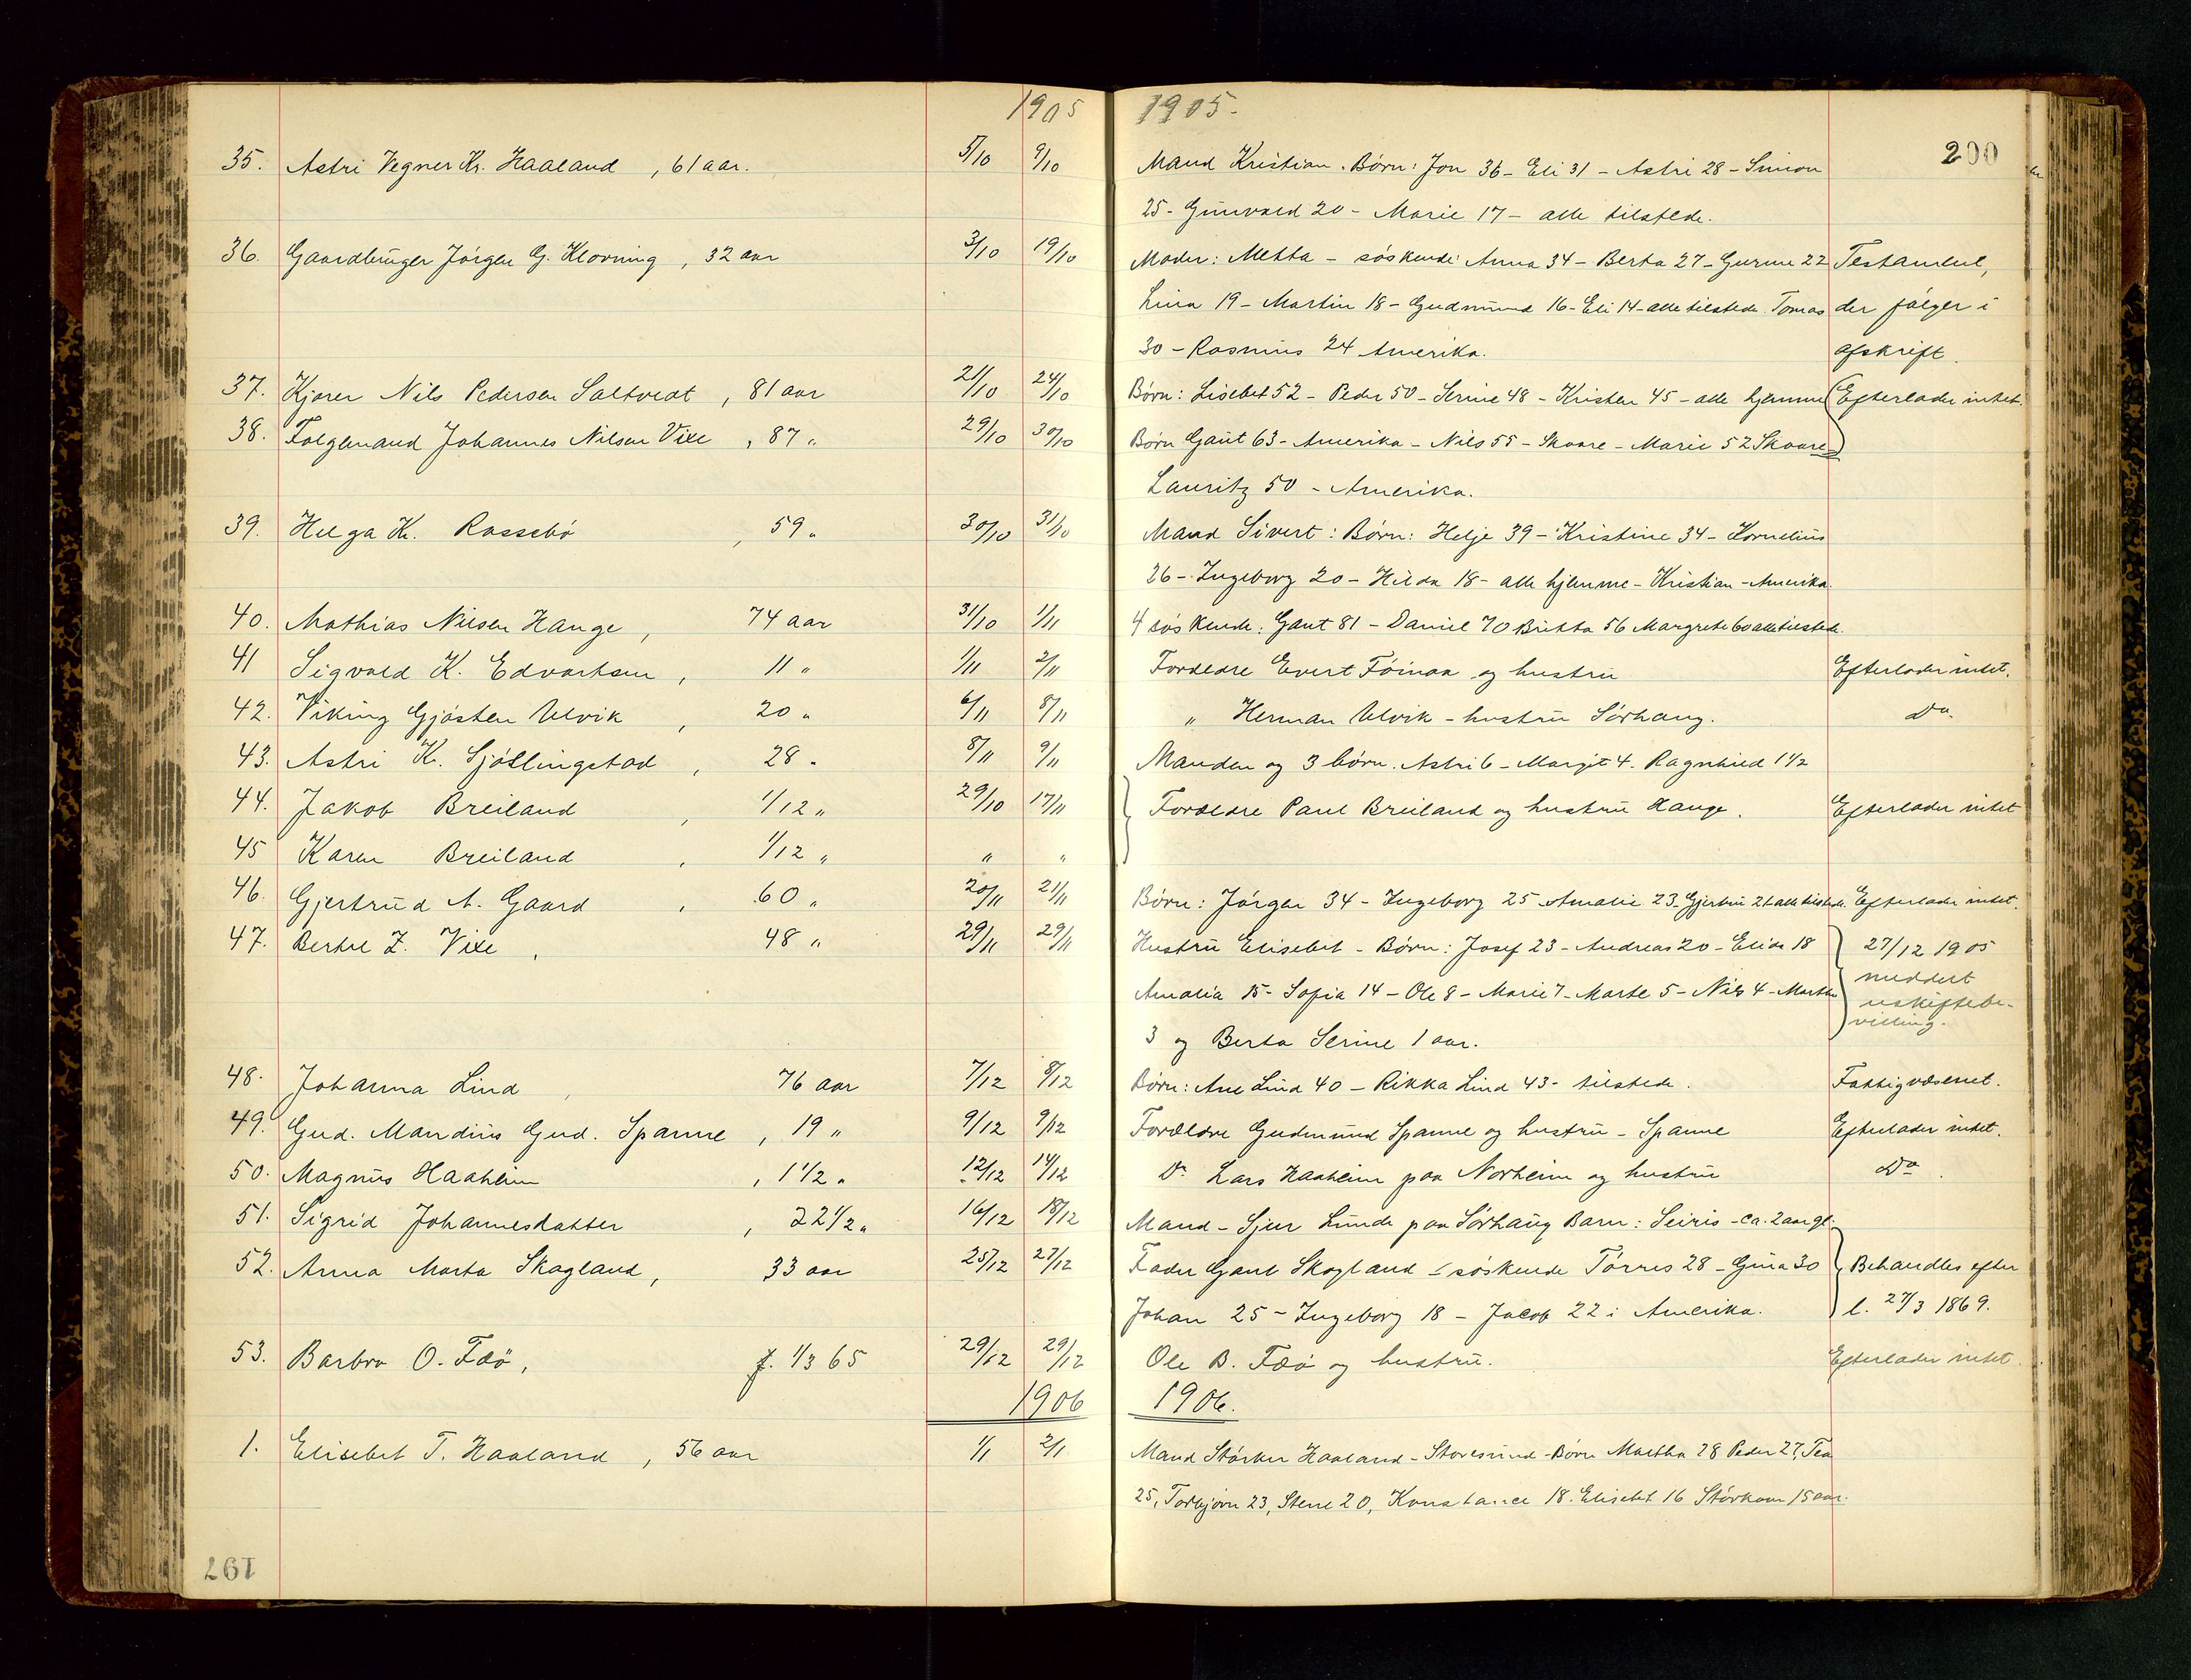 1905 1905.
200
35. Astri Vegner Kr. Haaland, 61 aar. 5/10 9/10 Mand Kristian. Børn: Jon 36 - Eli 31 - Astri 28 - Simon
25 - Gunvald 20 - Marie 17 - alle tilstede.
36. Gaardbruger Jørgen G. Klovning, 32 aar 3/10 19/10 Moder: Metta - søskende: Anna 34 - Berta 27 - Gurine 22 Testament,
Lina 19 - Martin 18 - Gudmund 16 - Eli 14 - alle tilstede. Tomas der følger i
30 - Rasmus 24 Amerika. afskrift.
37. Kjærer Nils Pedersen Saltvedt, 81 aar 21/10 24/10 Børn: Lisebet 52 - Peder 50 - Serine 48 - Kristen 45 - alle hjemme Efterlader intet.
38. Folgemand Johannes Nilsen Vixe, 87 " 29/10 30/10 Børn Gaut 63 - Amerika - Nils 55 - Skaare - Marie 52 Skaare
Lauritz 50 - Amerika.
39. Helga K. Rossebø, 59 " 30/10 31/10 Mand Sivert: Børn: Helje 39 - Kristine 34 - Kornelius
26 - Ingeborg 20 - Hilda 18 - alle hjemme - Kristian - Amerika.
40. Mathias Nilsen Hauge, 74 aar 31/10 1/11 4 søskende: Gaut 81 - Daniel 70 Britta 56 Margrete 60 alle tilstede.
41 Sigvald K. Edvartsen, 11 " 1/11 2/11 Forældre Evert Føinaa og hustru Efterlader intet.
42. Viking Gjøsten Ulvik, 20 " 6/11 8/11 " Herman Ulvik - hustru Sørhaug. Do.
43. Astri K. Sjøllingstad, 28 " 8/11 9/11 Manden og 3 børn. Astri 6 - Margit 4. Ragnhild 1 1/2
44. Jakob Breiland, 1/12 " 29/10 17/11 Forældre Paul Breiland og hustru Hauge. Efterlader intet
45 Karen Breiland, 1/12 " " "
46. Gjertrud A. Gaard, 60 " 20/11 21/11 Børn: Jørgen 34 - Ingeborg 25 Amalie 23 - Gjertru 21 alle tilstede. Efterlader intet.
47. Bertel Z. Vixe, 48 " 29/11 29/11 Hustru Elisebet - Børn: Josef 23 - Andreas 20 - Elida 18 27/12 1905
Amalia 15 - Sofia 14 - Ole 8 - Marie 7 - Marte 5 - Nils 4 - Martha meddelt
uskiftebe-
3 og Berta Serine 1 aar. villing.
48. Johanna Lind, 76 aar 7/12 8/12 Børn: Ane Lind 40 - Rikka Lind 43 - tilstede. Fattigvæsenet.
49. Gud. Mandius Gud. Spanne, 19 " 9/12 9/12 Forældre Gudmund Spanne og hustru - Spanne Efterlader intet.
50. Magnus Haaheim, 1 1/2 " 12/12 14/12 Do Lars Haaheim paa Norheim og hustru Do
51. Sigrid Johannesdatter, 22 1/2 " 16/12 18/12 Mand - Sjur Lunde paa Sørhaug Barn: Seiris - ca. 2 aar gl.
52. Anna Marta Skagland, 33 aar 25/12 27/12 Fader Gaut Skagland - søskende Tørres 28 - Gina 30 Behandles efter
Johan 25 - Ingeborg 18 - Jacob 22 i Amerika. l. 27/3 1869.
53. Barbro O. Fæø, f. 1/3 65 29/12 29/12 Ole B. Fæø og hustru. Efterlader intet.
1906 1906.
1. Elisebet T. Haaland, 56 aar 1/1 2/1 Mand Størker Haaland - Storesund - Børn Martha 28 Peder 27, Tea
25, Torbjørn 23, Stene 20, Konstance 18. Elisebet 16 Størkom 15 aar.
197